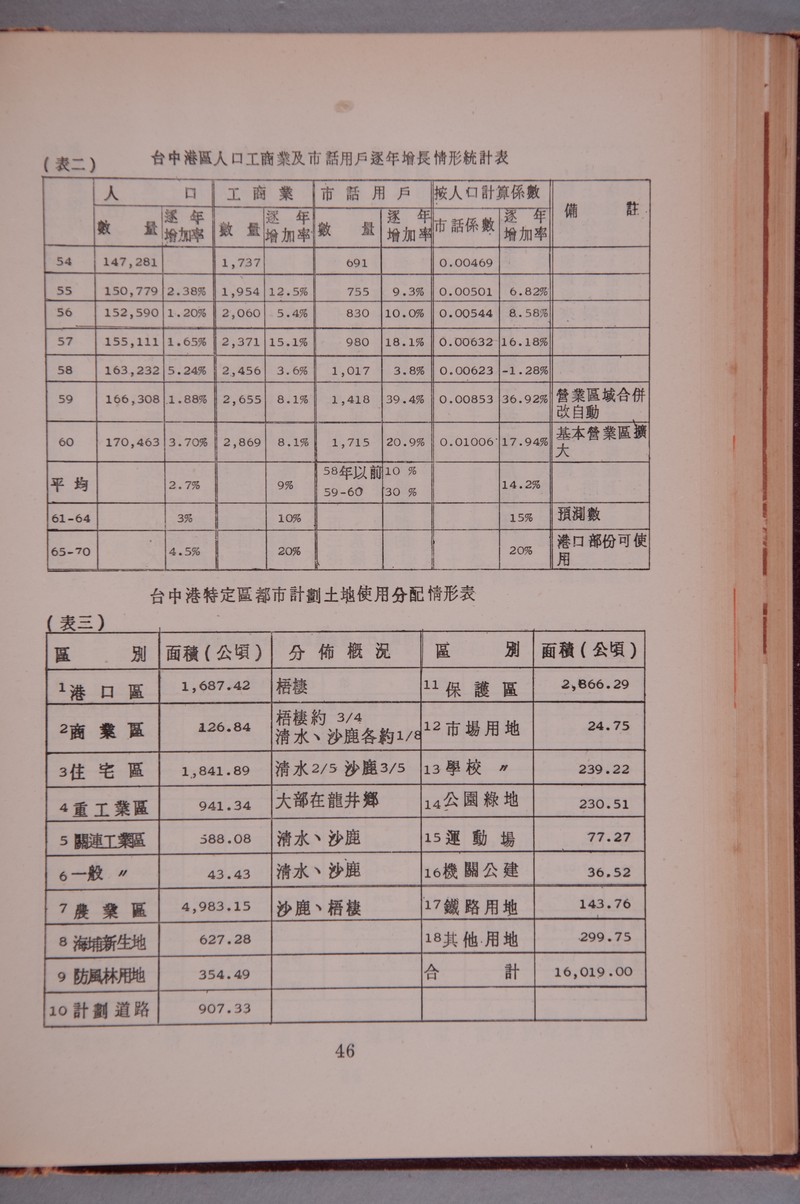 (表二) 台中港區人口工商業及市話用戶逐年增長情形統計表
人 口 工商業 市話用戶 按人口計算係數 備註
數量 逐年增加率 數量 逐年增加率 數量 逐年增加率 市話係數 逐年增加率
54 147,281 1,737 691 0.00469
55 150,779 2.38% 1,954 12.5% 755 9.3% 0.00501 6.82%
56 152,590 1.20% 2,060 5.4% 830 10.0% 0.00544 8.58%
57 155,111 1.65% 2,371 15.1% 980 18.1% 0.00632 16.18%
58 163,232 5.24% 2,456 3.6% 1,017 3.8% 0.00623 -1.28%
59 166,308 1.88% 2,655 8.1% 1,418 39.4% 0.00853 36.92% 營業區域合併改自動
60 170,463 3.70% 2,869 8.1% 1,715 20.9% 0.01006 17.94% 基本營業區擴大
平均 2.7% 9% 58年以前 10 % 14.2%
59-60 30 %
61-64 3% 10% 15% 預測數
65-70 4.5% 20% 20% 港口部份可使用
台中港特定區都市計劃土地使用分配情形表
(表三)
區別 面積(公頃) 分佈概況 區別 面積(公頃)
1 港口區 1,687.42 梧棲 11 保護區 2,866.29
2 商業區 126.84 梧棲約 3/4 清水、沙鹿各約1/8 12 市場用地 24.75
3 住宅區 1,841.89 清水2/5 沙鹿3/5 13 學校 〃 239.22
4 重工業區 941.34 大部在龍井鄉 14 公園綠地 230.51
5 關連工業區 588.08 清水、沙鹿 15 運動場 77.27
6 一般 〃 43.43 清水、沙鹿 16 機關公建 36.52
7 農業區 4,983.15 沙鹿、梧棲 17 鐵路用地 143.76
8 海埔新生地 627.28 18 其他用地 299.75
9 防風林用地 354.49 合計 16,019.00
10 計劃道路 907.33
46